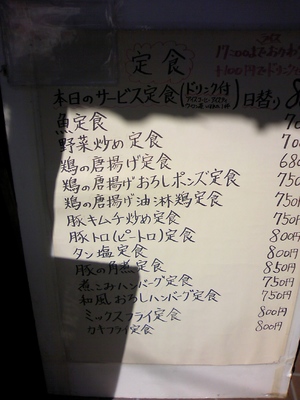 定食
本日のサービス定食(ドリンク付 日替り 8
魚定食 70
野菜炒め定食 70
鶏の唐揚げ定食 680
鶏の唐揚げおろしポンズ定食 750
鶏の唐揚げ油淋鶏定食 750
豚キムチ炒め定食 750
豚トロ(ピートロ)定食 800円
タン塩定食 800円
豚の角煮定食 850円
煮こみハンバーグ定食 750円
和風おろしハンバーグ定食 750円
ミックスフライ定食 800円
カキフライ定食 800円